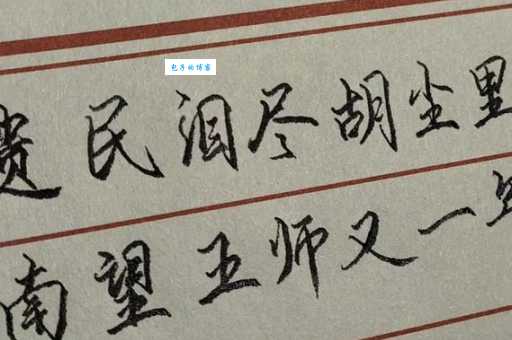 遗民泪尽胡尘里
南望王师又一年